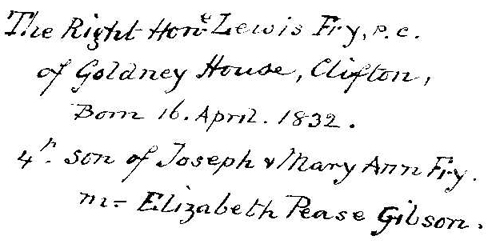 The Right Honᵉ Lewis Fry, P.C.
of Goldney House, Clifton,
Born 16. April. 1832.
4ʰ. son of Joseph & Mary Ann Fry.
m= Elizabeth Pease Gibson.